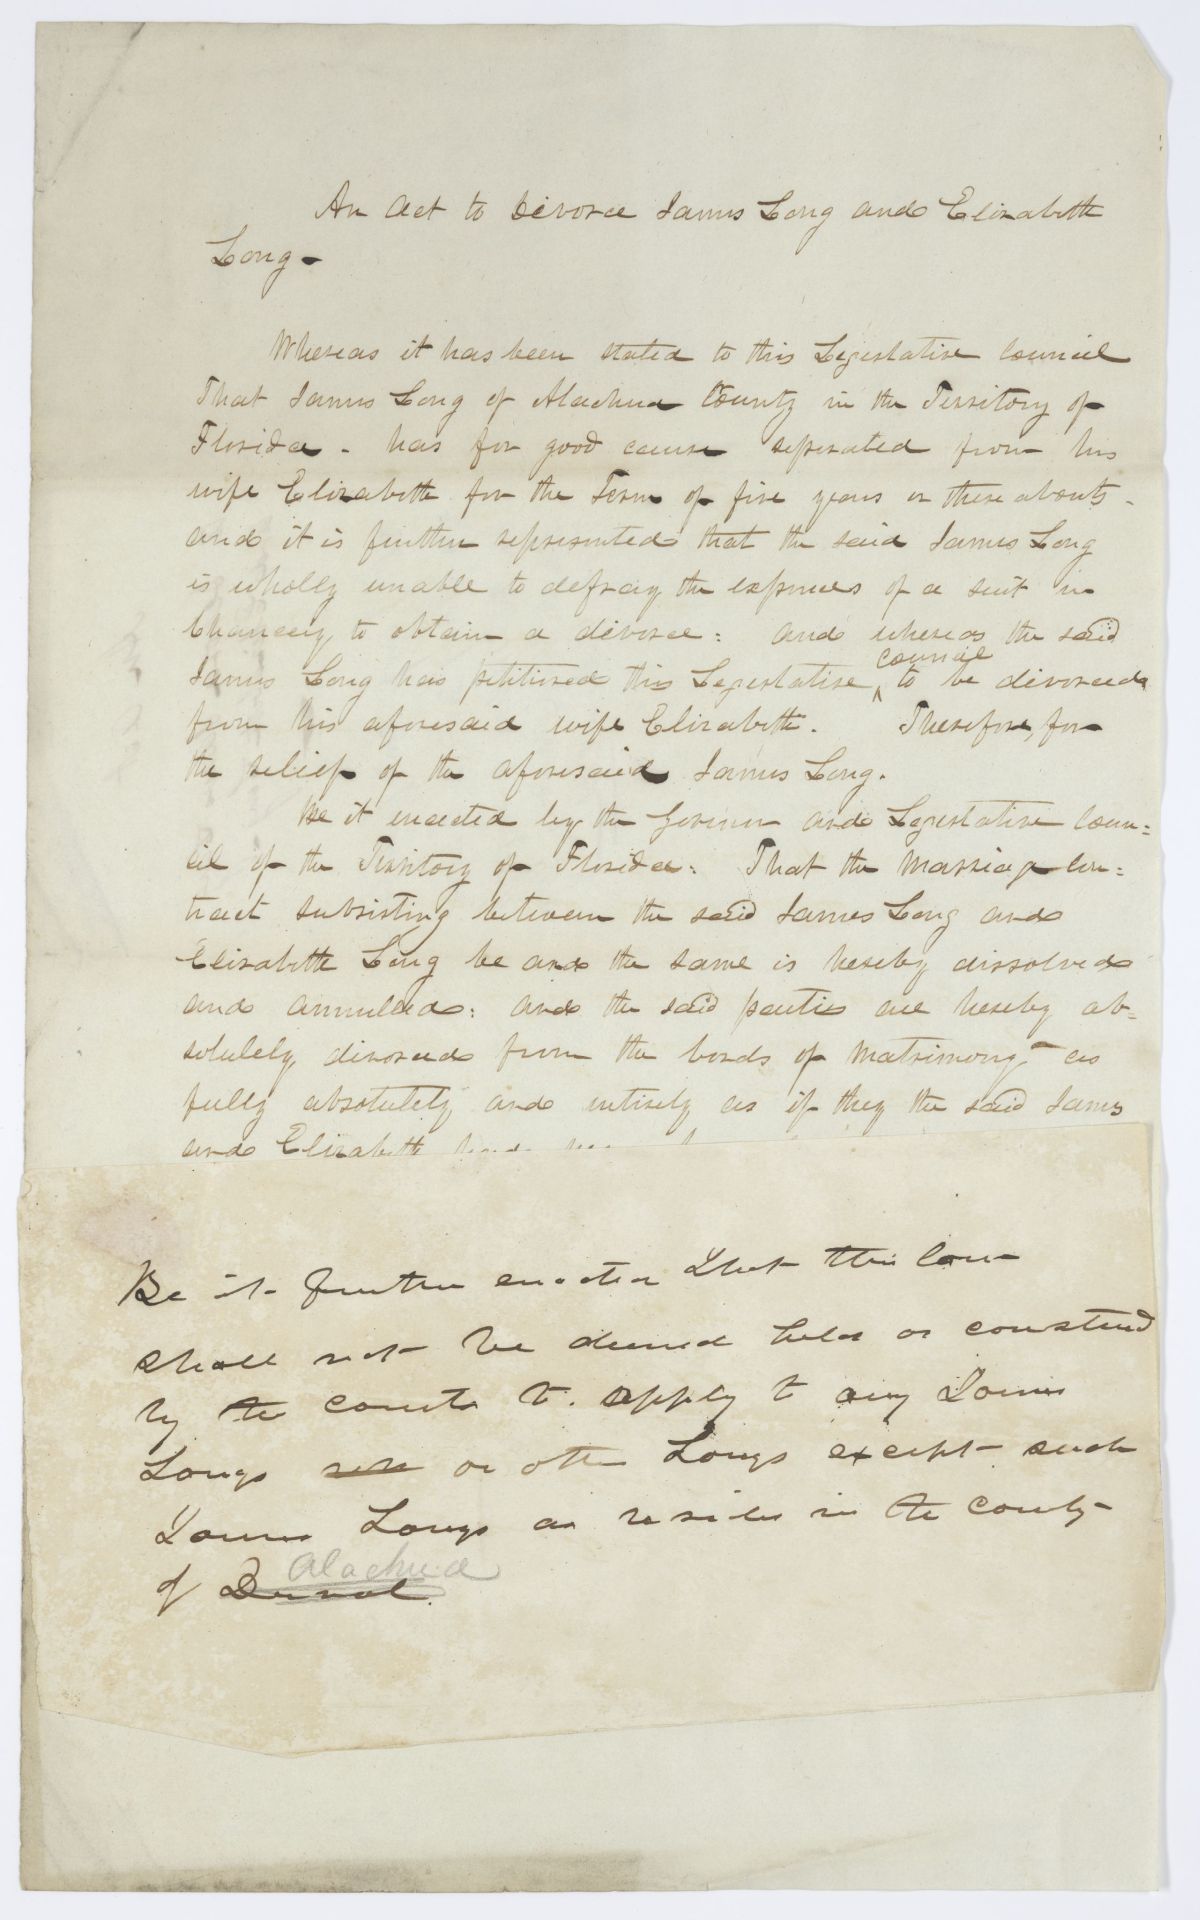 An Act to Divorce James Long and Elizabeth
Long -
Whereas it has been stated to this Legislative Council
That James Long of Alachua County in the Territory of
Florida - has for good cause seperated from his
wife Elizabeth for the Term of five years or there abouts -
and it is further represented that the said James Long
is wholly unable to defray the expences of a suit in
Chancery, to obtain a divorce: and whereas the said
James Long has petitioned this Legislative council to be divorced
from his aforesaid wife Elizabeth. Therefore, for
the relief of the aforesaid James Long.
Be it enacted by the Govenor and Legislative Coun=
cil of the Territory of Florida: That the Marriage Con=
tract subsisting between the said James Long and
Elizabeth Long be and the same is hereby dissolved
and annulled: and the said parties are hereby ab=
solutely, divorced from the bonds of Matrimony - as
fully absolutely and entirely as if they the said James
and Elizabeth
Be it further enacted That this law
shall not be deemed held or construed
by the courts to apply to any James
Longs or other Longs except such
James Longs as resides in the county
of Duval Alachua